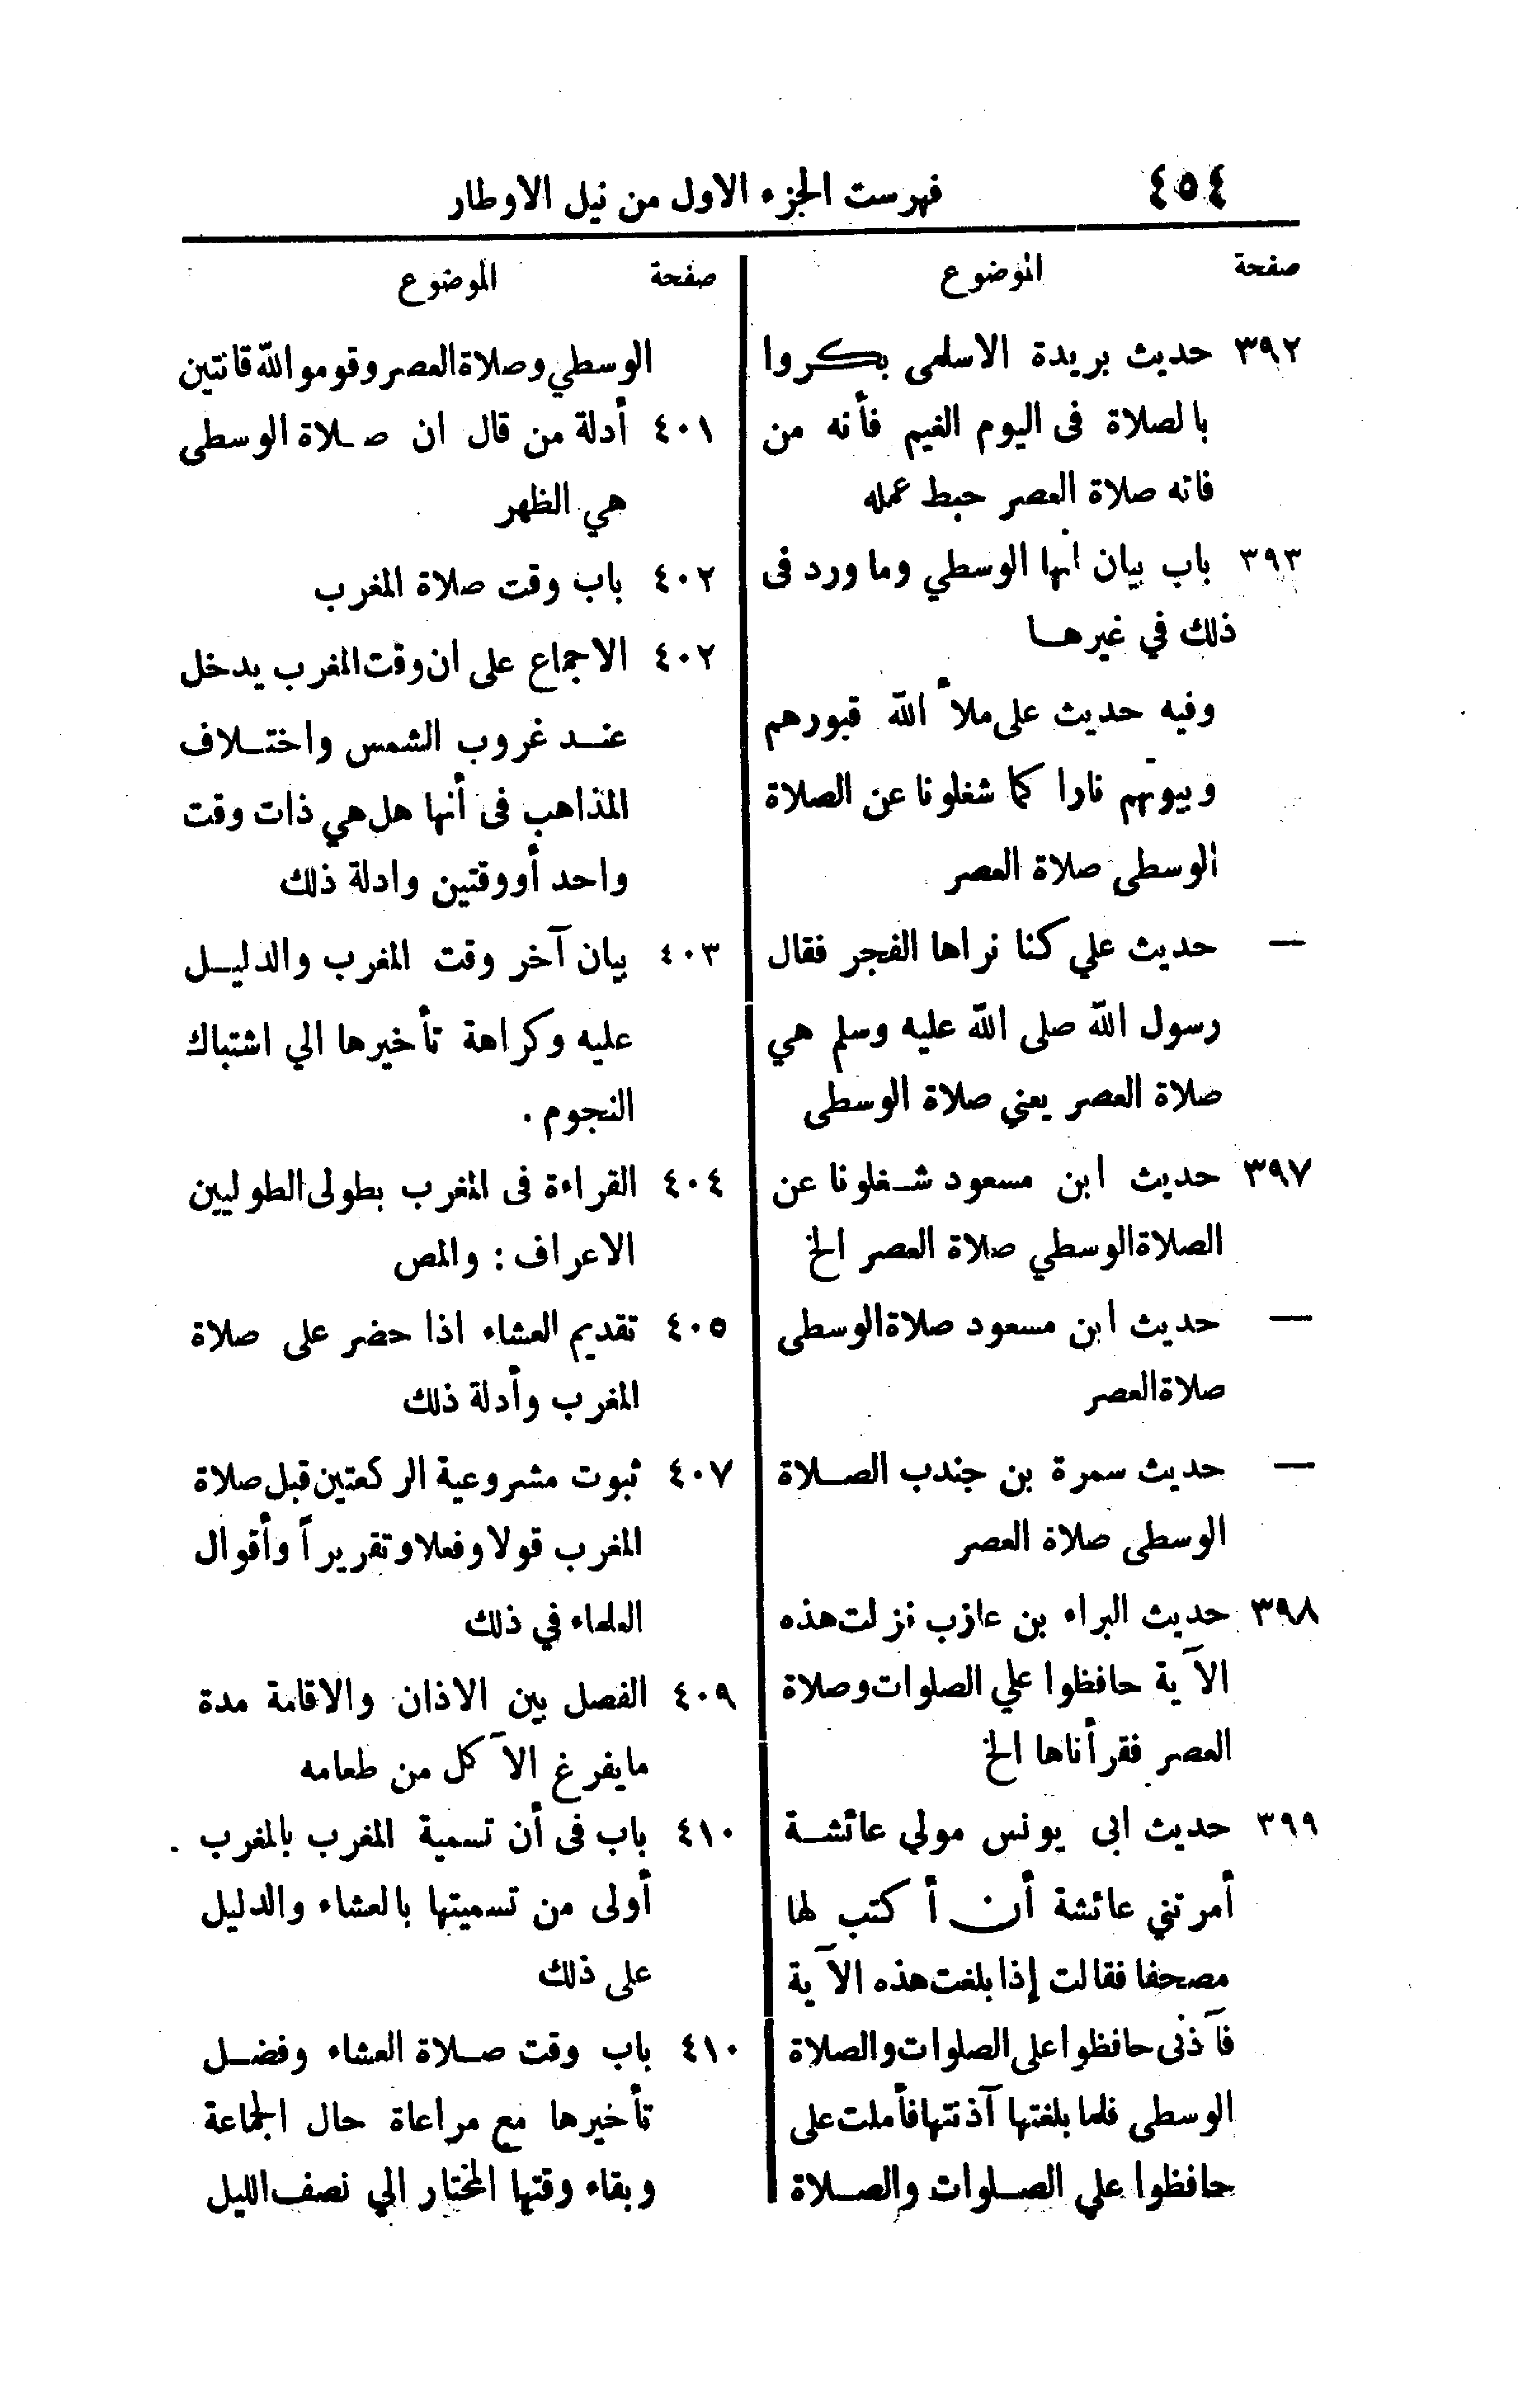 ٤٥٤ فهرست الجزء الاول من نيل الاوطار
صفحة الموضوع
٣٩٢ حديث بريدة الاسلمى بكروا
بالصلاة فى اليوم الغيم فأنه من
فاته صلاة العصر حبط عمله
٣٩٣ باب بيان أنها الوسطي وما ورد فى
ذلك في غيرها
وفيه حديث على ملأ الله قبورهم
وبيوتهم نارا كما شغلونا عن الصلاة
الوسطى صلاة العصر
— حديث علي كنا نراها الفجر فقال
رسول الله صلى الله عليه وسلم هي
صلاة العصر يعني صلاة الوسطى
٣٩٧ حديث ابن مسعود شغلونا عن
الصلاة الوسطي صلاة العصر الخ
— حديث ابن مسعود صلاة الوسطى
صلاة العصر
— حديث سمرة بن جندب الصلاة
الوسطى صلاة العصر
٣٩٨ حديث البراء بن عازب نزلت هذه
الآية حافظوا علي الصلوات وصلاة
العصر فقرأناها الخ
٣٩٩ حديث ابى يونس مولي عائشة
أمرتني عائشة أن أكتب لها
مصحفا فقالت إذا بلغت هذه الآية
فآذنى حافظوا على الصلوات والصلاة
الوسطى فلما بلغتها آذنتها فأملت على
حافظوا علي الصلوات والصلاة
صفحة الموضوع
الوسطي وصلاة العصر وقوموا لله قانتين
٤٠١ أدلة من قال ان صلاة الوسطى
هي الظهر
٤٠٢ باب وقت صلاة المغرب
٤٠٢ الاجماع على ان وقت المغرب يدخل
عند غروب الشمس واختلاف
المذاهب فى أنها هل هي ذات وقت
واحد أو وقتين وادلة ذلك
٤٠٣ بيان آخر وقت المغرب والدليل
عليه وكراهة تأخيرها الي اشتباك
النجوم .
٤٠٤ القراءة فى المغرب بطولى الطوليين
الاعراف : والمص
٤٠٥ تقديم العشاء اذا حضر على صلاة
المغرب وأدلة ذلك
٤٠٧ ثبوت مشروعية الركعتين قبل صلاة
المغرب قولا وفعلا وتقريراً وأقوال
العلماء في ذلك
٤٠٩ الفصل بين الاذان والاقامة مدة
مايفرغ الآكل من طعامه
٤١٠ باب فى أن تسمية المغرب بالمغرب .
أولى من تسميتها بالعشاء والدليل
على ذلك
٤١٠ باب وقت صلاة العشاء وفضل
تأخيرها مع مراعاة حال الجماعة
وبقاء وقتها المختار الي نصف الليل